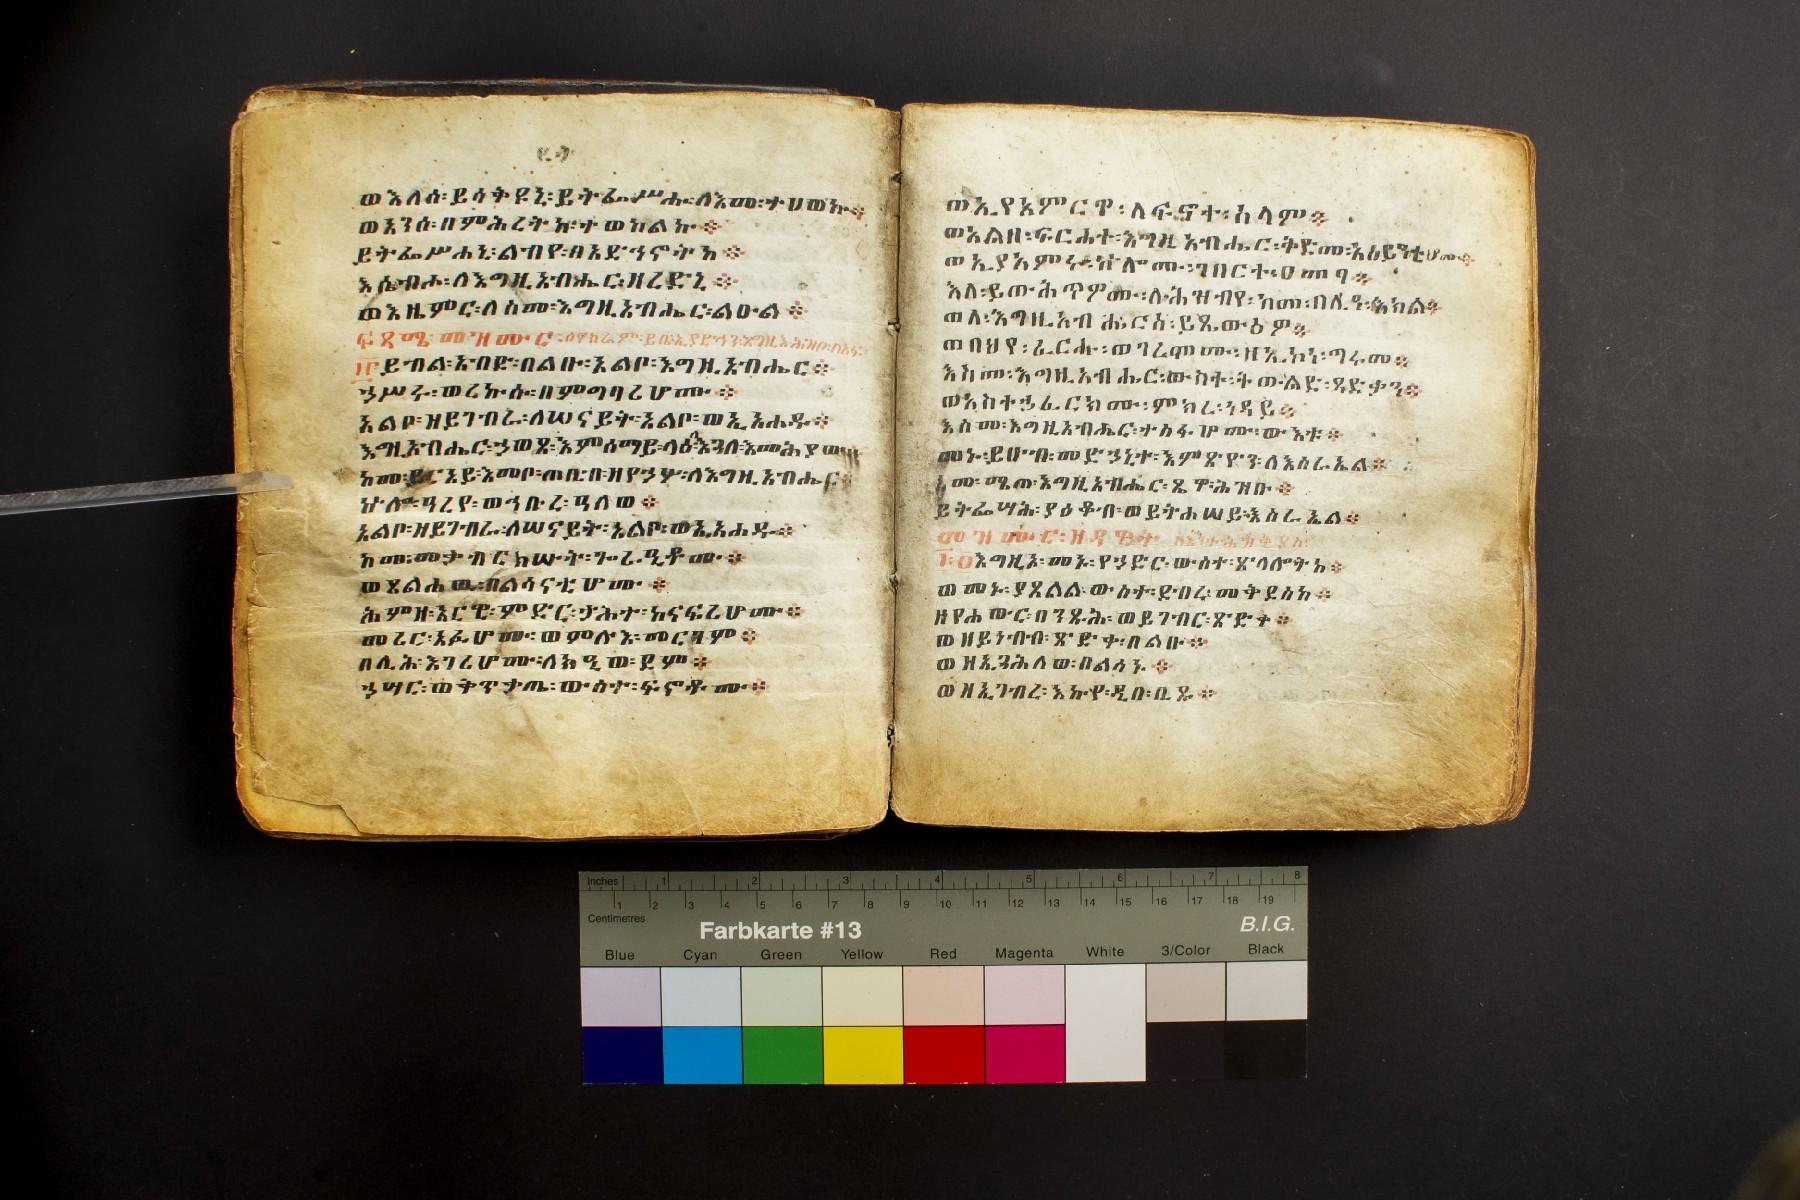 ወእለሰ፡ይሳቅዩኒ፡ይትፌሥሑ፡ለእመ፡ተሀወኩ፨
ወአንሰ፡በምሕረትከ፡ተወከልኩ፨
ይትፌሥሐኒ፡ልብየ፡በአድኅኖትከ፨
እሴብሖ፡ለእግዚአብሔር፡ዘረድኒ፨
ወእዜምር፡ለስመ፡እግዚአብሔር፡ልዑል፨
ፍጻሜ፡መዝሙር፡
፲፫ይብል፡አብድ፡በልቡ፡አልቦ፡እግዚአብሔር፨
ኃሥሩ፡ወረኩሱ፡በምግባሪሆሙ፨
አልቦ፡ዘይገብራ፡ለሠናይት፡አልቦ፡ወኢአሐዱ፨
እግዚአብሔር፡ኃወጸ፡እምሰማይ፡ላዕለ፡እጓለ፡እመሕያው፨
ከመ፡ይርአይ፡እመቦ፡ጠቢብ፡ዘየኃሦ፡ለእግዚአብሔር፨
ኵሉ፡ዓረየ፡ወኅቡረ፡ዓለወ፨
አልቦ፡ዘይገብራ፡ለሠናይት፡አልቦ፡ወኢአሐዱ፨
ከመ፡መቃብር፡ክሡት፡ጐራዒቶሙ፨
ወጸልሐዉ፡በልሳናቲሆሙ፨
ሕምዘ፡አርዌ፡ምድር፡ታሕተ፡ከናፍሪሆሙ፨
መሪር፡አፉሆሙ፡ወምሉእ፡መርገም፨
በሊሕ፡እገሪሆሙ፡ለክዒወ፡ደም፨
ኃሣር፡ወቅጥቃጤ፡ውስተ፡ፍኖቶሙ፨
ወኢየአምርዋ፡ለፍኖተ፡ሰላም፨
ወአልቦ፡ፍርሀተ፡እግዚአብሔር፡ቅድመ፡አዕይንቲሆሙ፨
ወኢያአምሩ፡ኵሎሙ፡ገበርተ፡ዐመፃ፨
እለ፡ይውሕጥዎሙ፡ለሕዝብየ፡ከመ፡በሊዓ፡እክል፨
ወለ፡እግዚአብሔርሰ፡ይጼውዕዎ፨
ወበህየ፡ፈርሁ፡ወገረሞሙ፡ዘኢኮነ፡ግሩመ፨
እስመ፡እግዚአብሔር፡ውስተ፡ትውልድ፡ጻድቃን፨
ወአስተኃፈርክሙ፡ምክረ፡ነዳይ፨
እስመ፡እግዚአብሔር፡ተስፋሆሙ፡ውእቱ፨
መኑ፡ይሁብ፡መድኃኒተ፡እምጽዮን፡ለእስራኤል፨
አመ፡ሜጠ፡እግዚአብሔር፡ጼዋ፡ሕዝቡ፨
ይትፌሣሕ፡ያዕቆብ፡ወይትሐሠይ፡እስራኤል፨
መዝሙር፡ዘዳዊት
፲፬እግዚኦ፡መኑ፡የኃድር፡ውስተ፡ጽላሎትከ፨
ወመኑ፡ያጸልል፡ውስተ፡ደብረ፡መቅደስከ፨
ዘየሐውር፡በንጹሕ፡ወይገብር፡ጽድቀ፨
ወዘይነብብ፡ጽድቀ፡በልቡ፨
ወዘኢጓሕለወ፡በልሳኑ፨
ወዘኢገብረ፡እኩየ፡ዲበ፡ቢጹ፨
Inches 1 2 3 4 5 6 7 8
1 2 3 4 5 6 7 8 9 10 11 12 13 14 15 16 17 18 19
Centimetres
Farbkarte #13 B.I.G.
Blue Cyan Green Yellow Red Magenta White 3/Color Black